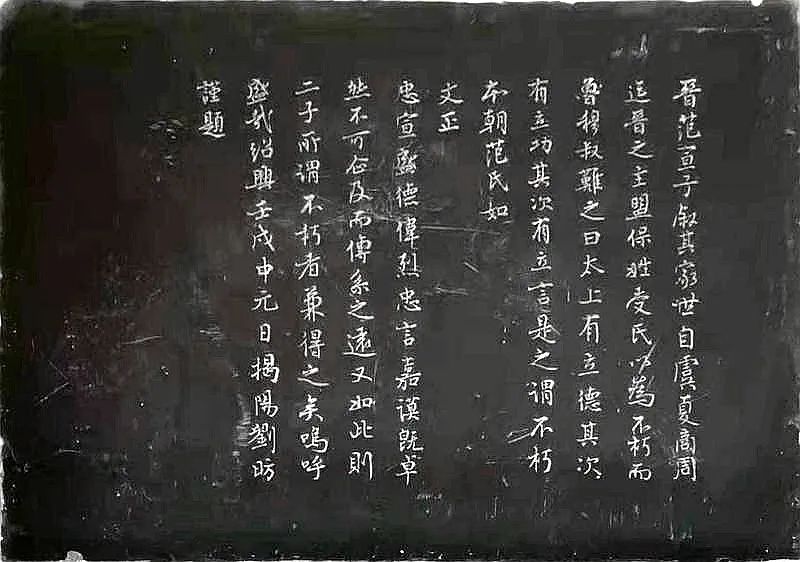 晉范宣子叙其家世自虞夏商周
迄晉之主盟保姓受氏以為不朽而
魯穆叔難之曰太上有立德其次
有立功其次有立言是之謂不朽
本朝范氏如
文正
忠宣盛德偉烈忠言嘉謨既卓
然不可企及而傳系之遠又如此則
二子所謂不朽者兼得之矣嗚呼
盛哉紹興壬戌中元日揭陽劉昉
謹題